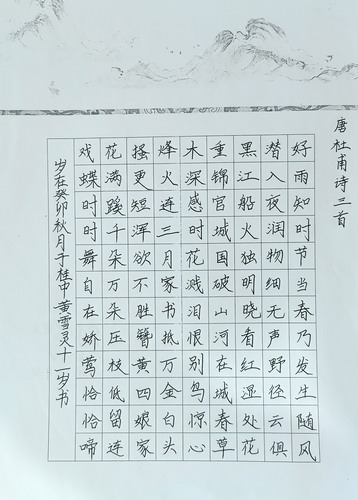 唐杜甫诗三首
好雨知时节当春乃发生随风
潜入夜润物细无声野径云俱
黑江船火独明晓看红湿处花
重锦官城国破山河在城春草
木深感时花溅泪恨别鸟惊心
烽火连三月家书抵万金白头
搔更短浑欲不胜簪黄四娘家
花满蹊千朵万朵压枝低留连
戏蝶时时舞自在娇莺恰恰啼
岁在癸卯秋月于桂中黄雪灵十一岁书